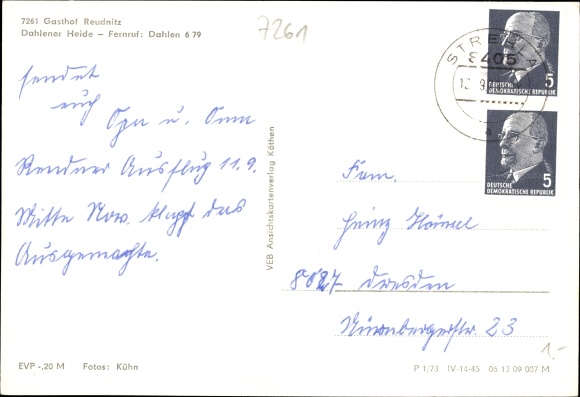 7261 Gasthof Reudnitz
Dahlener Heide – Fernruf: Dahlen 6 79
7261
sendet
euch
Opa u. Oma
Rentner Ausflug 11.9.
Mitte Nov. klappt das
Ausgemachte.
VEB Ansichtskartenverlag Köthen
STREHLA
8405
a
5
DEUTSCHE
DEMOKRATISCHE REPUBLIK
5
DEUTSCHE
DEMOKRATISCHE REPUBLIK
Fam.
Heinz
8027 Dresden
Nürnbergerstr 23
1.-
EVP -,20 M Fotos: Kühn
P 1/73 IV-14-45 05 13 09 007 M